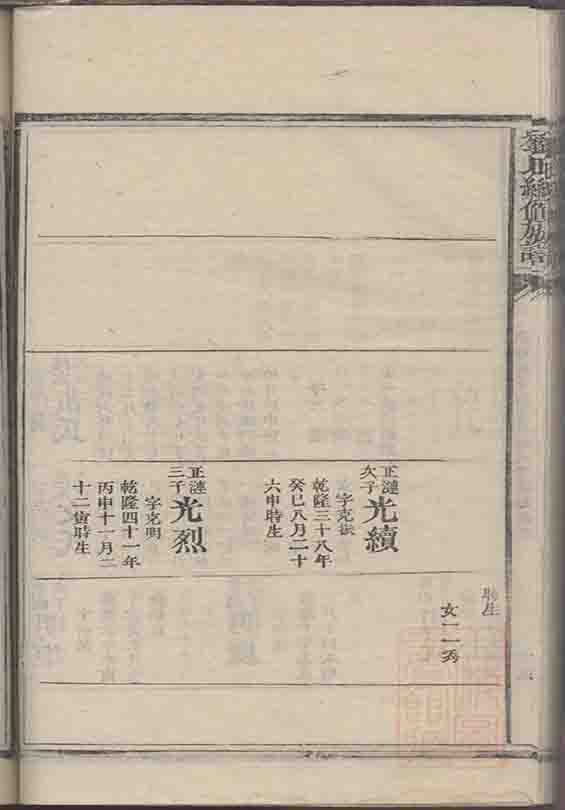 修族譜
時生
女一
正漣
次子
光續
字克振
乾隆三十八年
癸巳八月二十
六申時生
正漣
三子
光烈
字克明
乾隆四十一年
丙申十一月二
十二寅時生